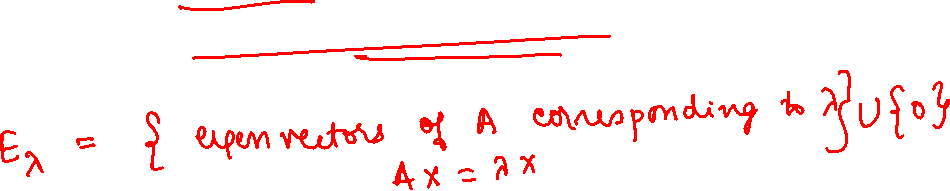 E_λ = { eigenvectors of A corresponding to λ} ∪ {0}
AX = λX